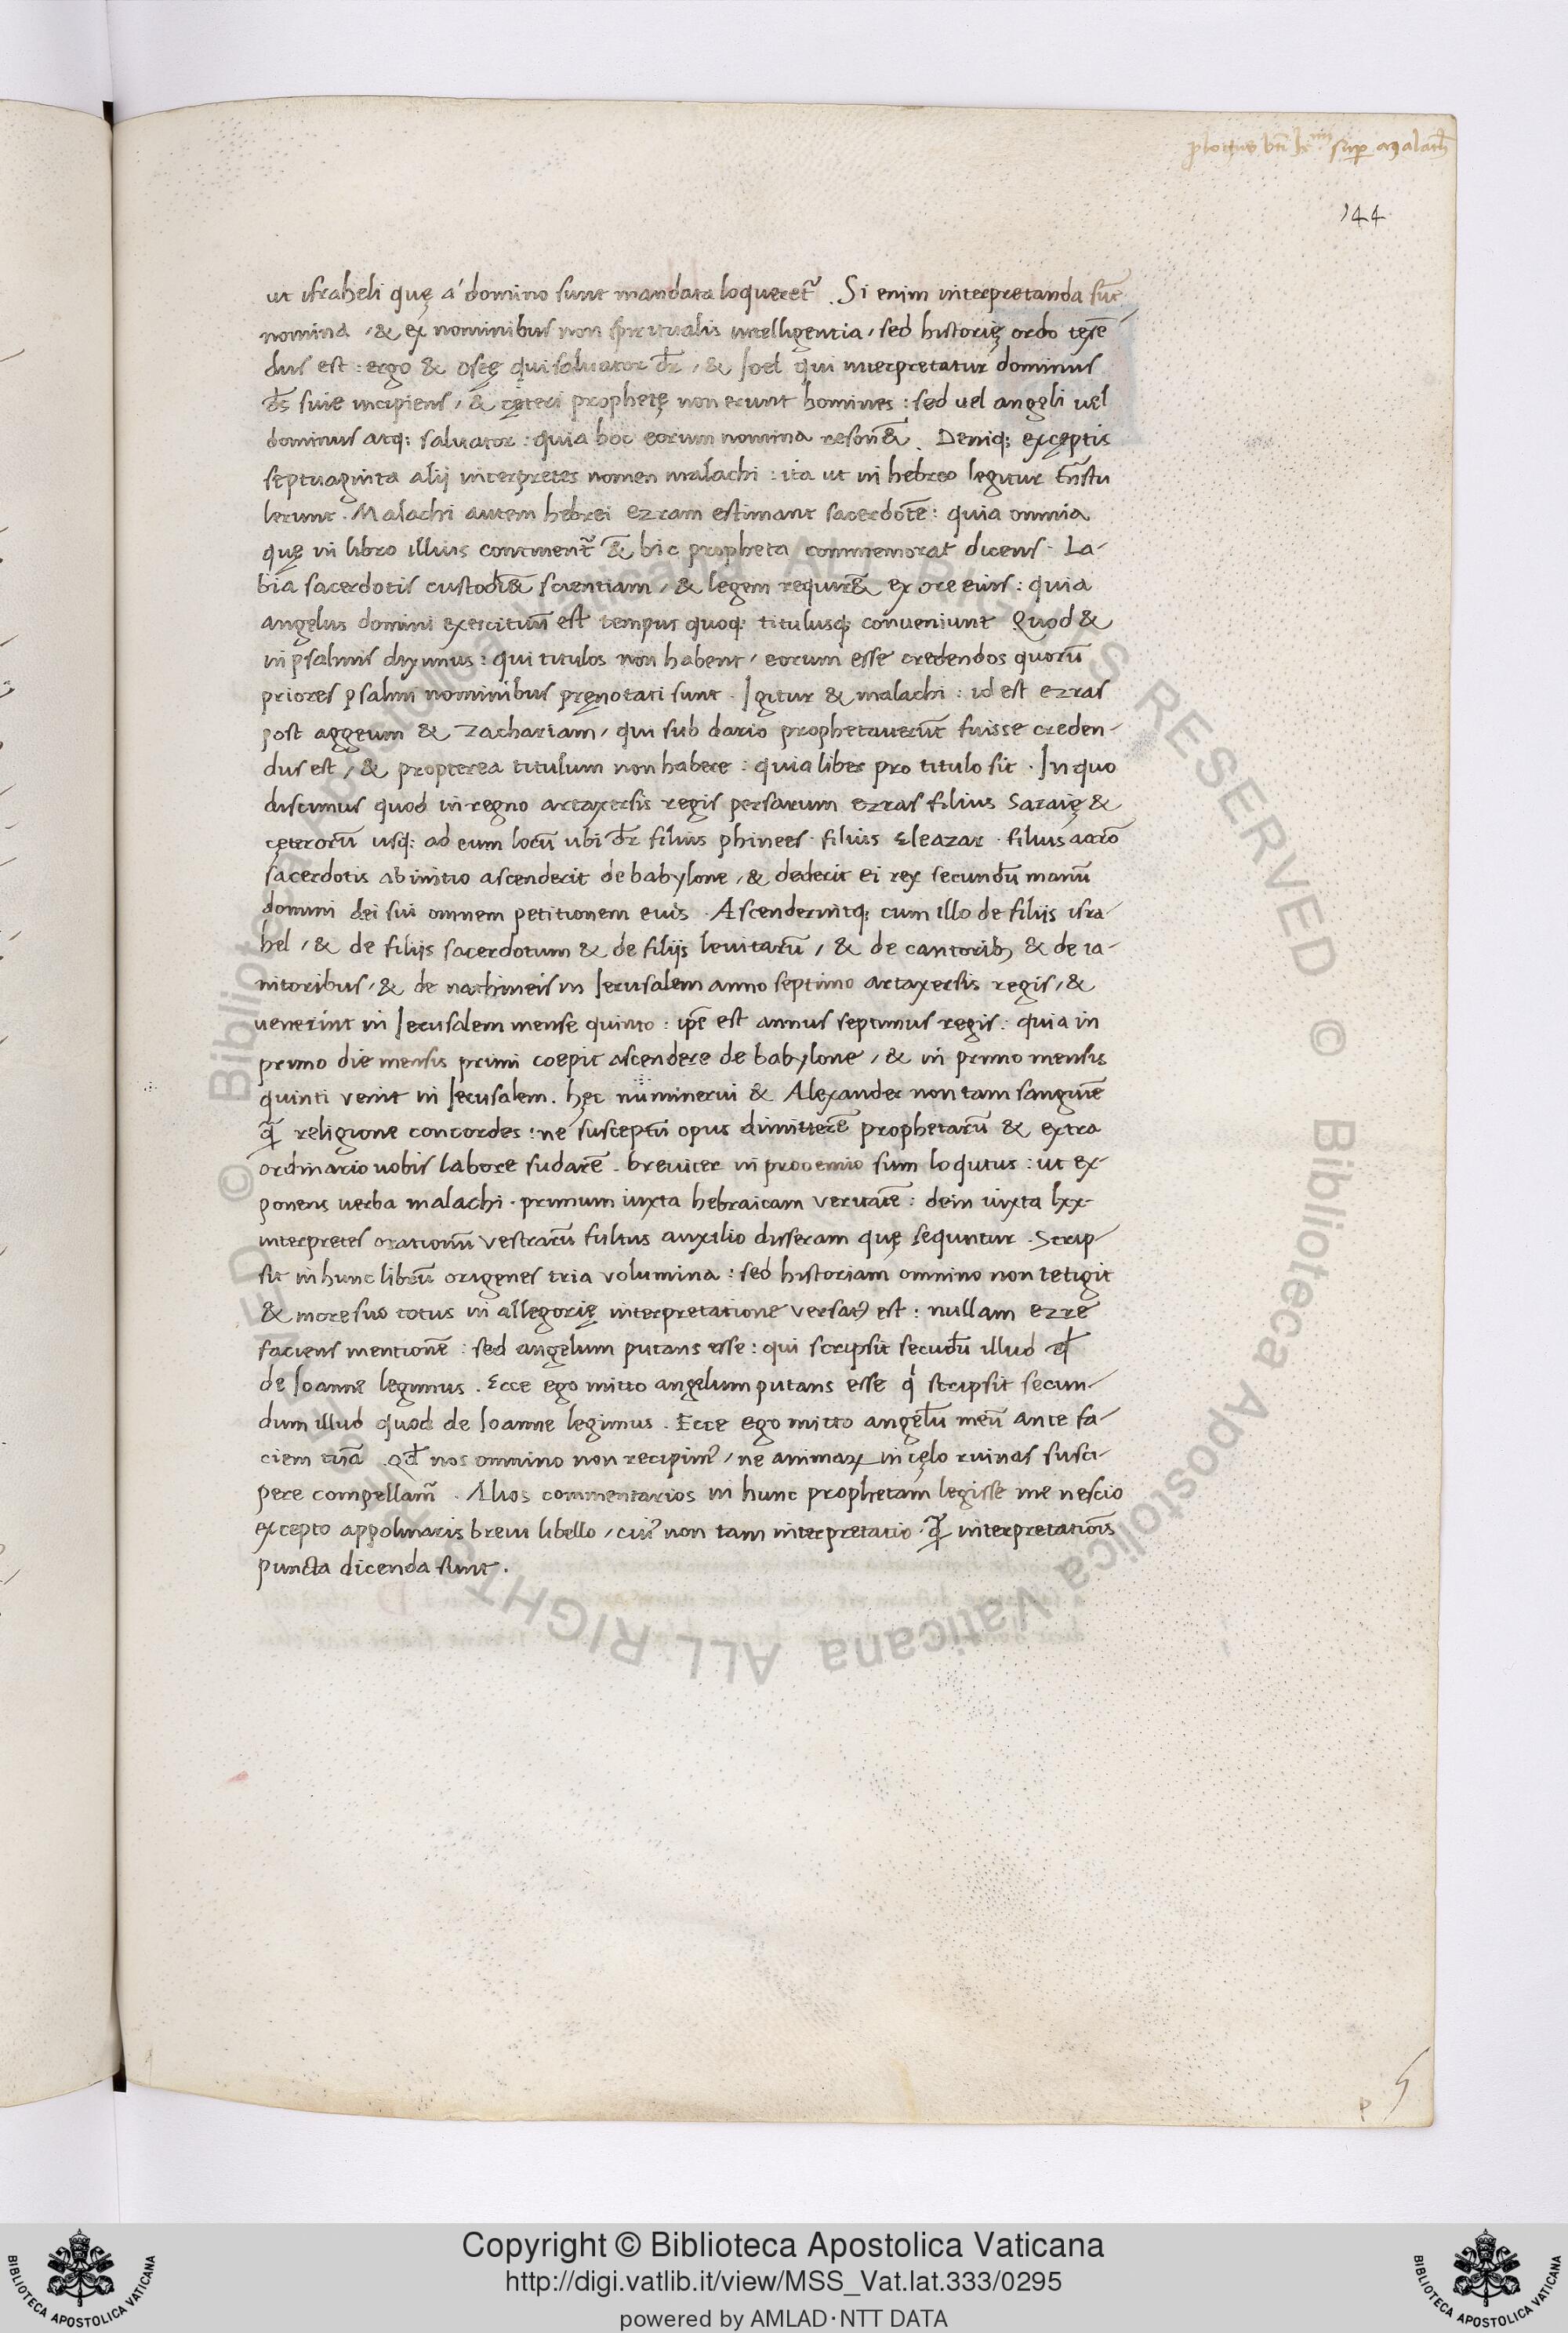 ꝓlogus bti Jeronimi sup malach
144
ut israheli quę a' domino sunt mandata loqueret̃ . Si enim interpretanda sũt
nomina / & ex nominibus non spiritualis intelligentia / sed historię ordo texẽ-
dus est : ergo & oseę qui saluator dr̃ / & Joel qui interpretatur dominus
ds̃ siue incipiens / & cęteri prophetę non erunt homines : sed uel angeli uel
dominus atq; saluator : quia hoc eorum nomina reson& . Deniq; exceptis
septuaginta alij interpretes nomen malachi : ita ut in hebreo legitur trãstu
lerunt . Malachi autem hebrei ezram estimant sacerdotẽ : quia omnia
quę in libro illius continent̃ & hic propheta commemorat dicens . La-
bia sacerdotis custodi& scientiam / & legem requir& ex ore eius : quia
angelus domini exercituũ est tempus quoq; titulusq; conueniunt Quod &
in psalmis diximus : qui titulos non habent / eorum esse credendos quorũ
priores psalmi nominibus pręnotati sunt . Igitur & malachi : id est ezras
post aggeum & Zachariam / qui sub dario prophetauerũt fuisse creden-
dus est / & propterea titulum non habere : quia liber pro titulo sit . In quo
discimus quod in regno artaxersis regis persarum ezras filius Saraię &
cęterorũ usq; ad eum locũ ubi dr̃ filius phinees . filius Eleazar . filius aarõ
sacerdotis ab initio ascenderit de babylone / & dederit ei rex secundũ manũ
domini dei sui omnem petitionem euis . Ascenderintq; cum illo de filijs isra-
hel / & de filijs sacerdotum & de filijs leuitarũ / & de cantorib; & de ia-
nitoribus / & de nathineis in Jerusalem anno septimo artaxersis regis / &
uenerint in Jerusalem mense quinto : ipse est annus septimus regis : quia in
primo die mensis primi coepit ascendere de babylone / & in primo mensis
quinti venit in Jerusalem . hęc nũ minerui & Alexander non tam sanguinẽ
q̃ religione concordes : ne susceptũ opus dimitterẽ prophetarũ & extra
ordinario uobis labore sudarẽ . breuiter in prooemio sum loqutus : ut ex-
ponens uerba malachi . primum iuxta hebraicam veritatẽ : dein iuxta lxx-
interpretes orationũ vestrarũ fultus auxilio disseram quę sequntur . Scrip-
sit in hunc librũ origenes tria volumina : sed historiam omnino non tetigit
& more suo totus in allegorię interpretatione versatꝰ est : nullam ezre
faciens mentionẽ : sed angelum putans esse : qui scripsit secũdũ illud qđ
de Joanne legimus . Ecce ego mitto angelum putans esse q̍ scripsit secun-
dum illud quod de Joanne legimus . Ecce ego mitto angelũ meũ ante fa-
ciem tuã . Qđ nos omnino non recipimꝰ / ne animaꝝ in cęlo ruinas susci-
pere compellam̃ . Alios commentarios in hunc prophetam legisse me nescio
excepto appolinaris breui libello / cuiꝰ non tam interpretatio . q̃ interpretationis
puncta dicenda sunt .
p
© Biblioteca Apostolica Vaticana ALL RIGHTS RESERVED © Biblioteca Apostolica Vaticana ALL RIGHTS RESERVED
BIBLIOTECA APOSTOLICA VATICANA
Copyright © Biblioteca Apostolica Vaticana
http://digi.vatlib.it/view/MSS_Vat.lat.333/0295
powered by AMLAD·NTT DATA
BIBLIOTECA APOSTOLICA VATICANA